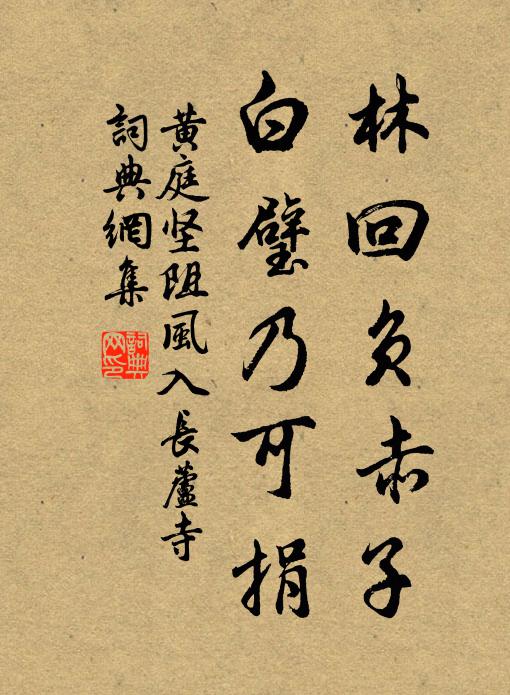 林回負赤子
白璧乃可捐
黃庭坚阻風入長蘆寺
詞典網集
詞典
网印